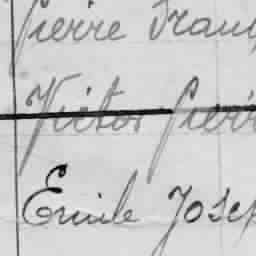 Pierre Franç
Victor Pierr
Emile Josep